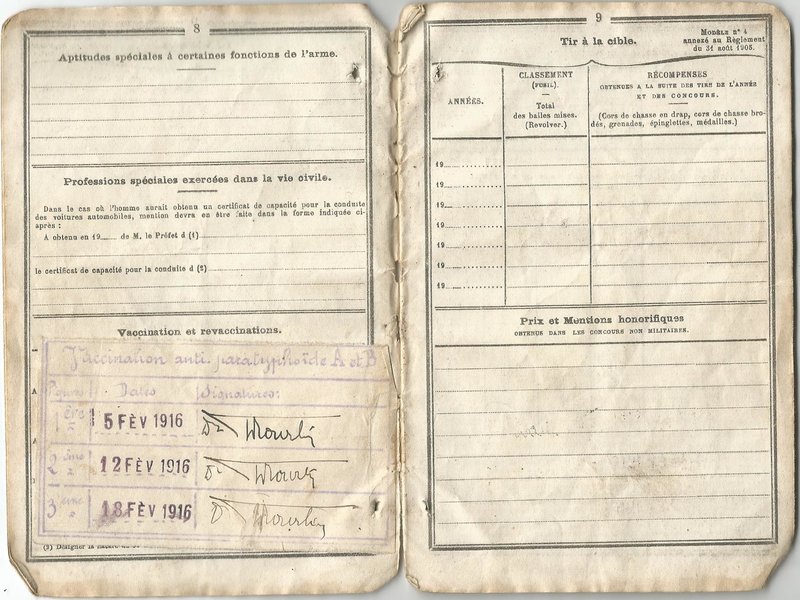 8
Aptitudes spéciales à certaines fonctions de l'arme.
Professions spéciales exercées dans la vie civile.
Dans le cas où l'homme aurait obtenu un certificat de capacité pour la conduite
des voitures automobiles, mention devra en être faite dans la forme indiquée ci-
après :
A obtenu en 19 de M. le Préfet d (1)
le certificat de capacité pour la conduite d (2)
Vaccination et revaccinations.
Vaccination anti-paratyphoïde A et B
Dates Signatures:
1ère 5 FÉV 1916
2ème 12 FÉV 1916
3ème 18 FÉV 1916
(3) Désigner la nature
9
Modèle n° 4
annexé au Règlement
du 31 août 1905.
Tir à la cible.
ANNÉES.
CLASSEMENT
(FUSIL).
Total
des balles mises.
(Revolver.)
RÉCOMPENSES
OBTENUES A LA SUITE DES TIRS DE L'ANNÉE
ET DES CONCOURS.
(Cors de chasse en drap, cors de chasse bro-
dés, grenades, épinglettes, médailles.)
19
19
19
19
19
19
19
Prix et Mentions honorifiques
OBTENUS DANS LES CONCOURS NON MILITAIRES.